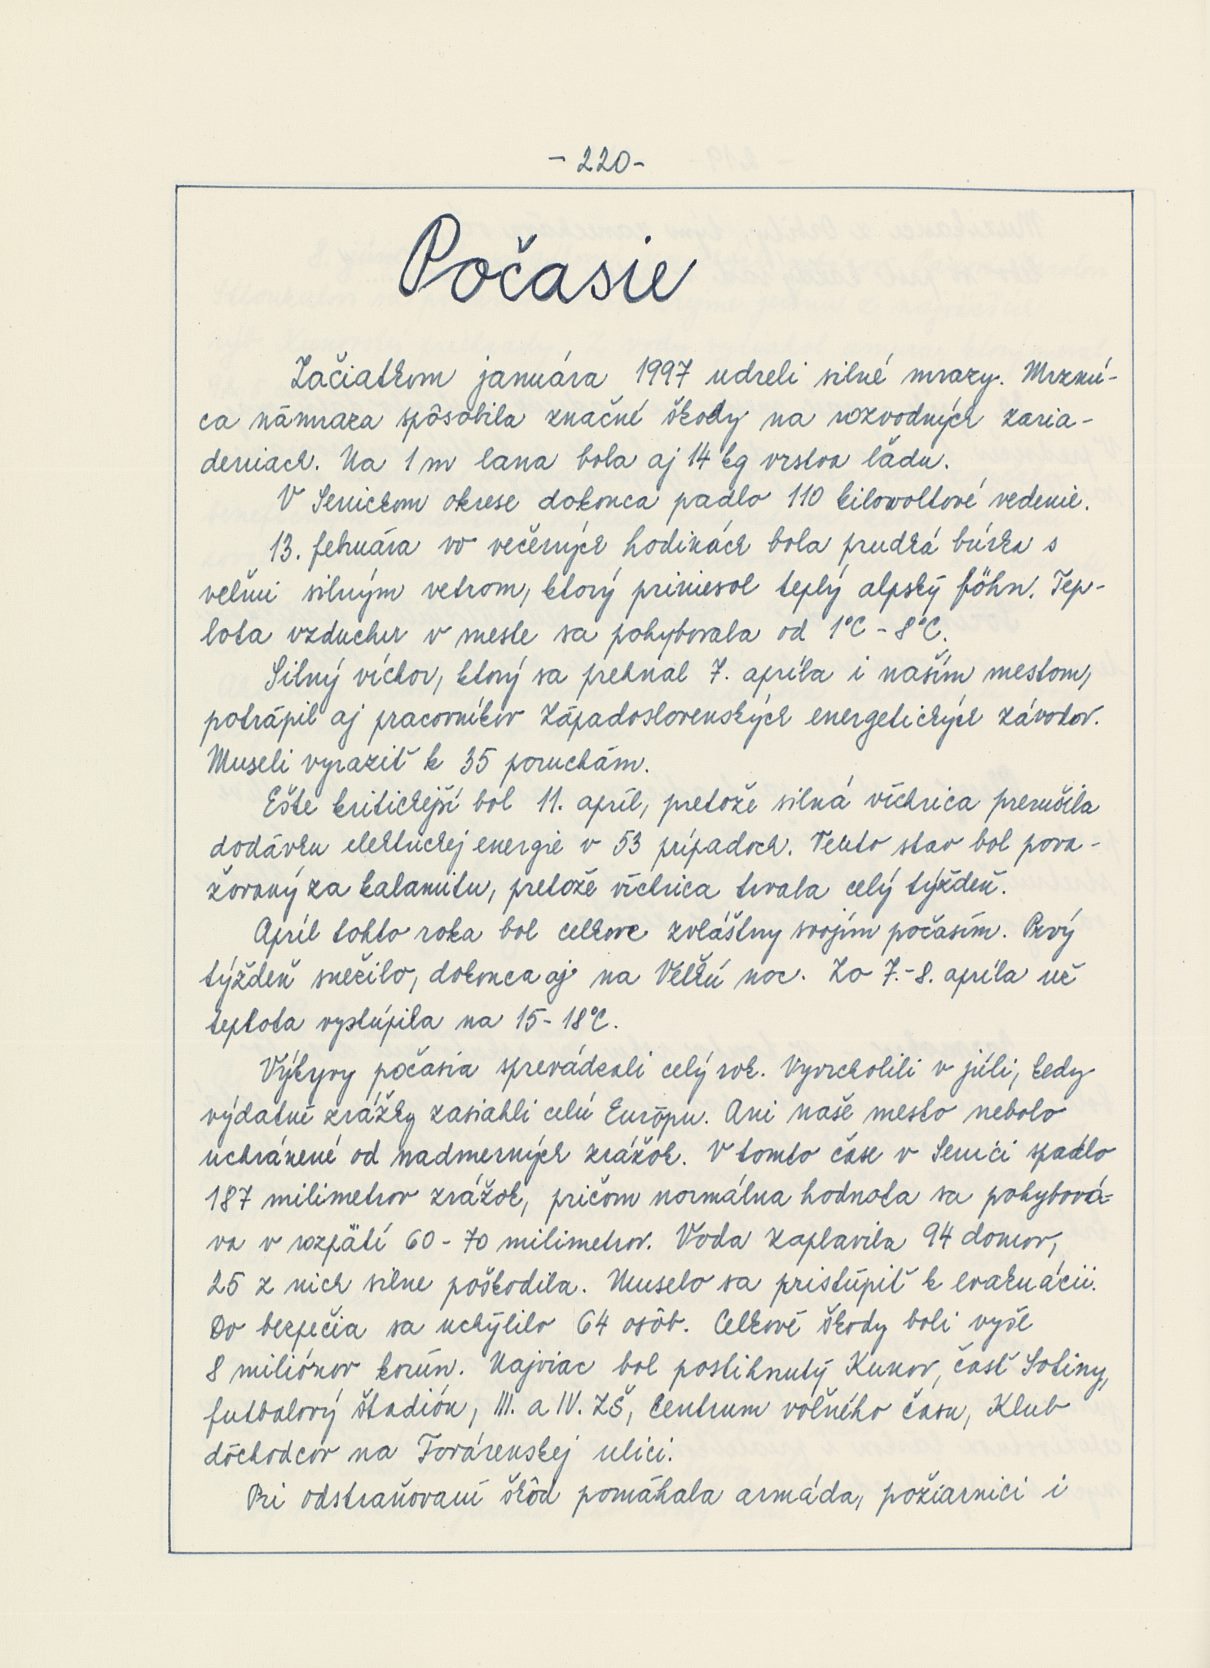 - 220 -
Počasie
Začiatkom januára 1997 udreli silné mrazy. Mrznú-
ca námraza spôsobila značné škody na rozvodných zaria-
deniach. Na 1 m lana bola aj 14 kg vrstva ľadu.
V Senickom okrese dokonca padlo 110 kilowoltové vedenie.
13. februára vo večerných hodinách bola prudká búrka s
veľmi silným vetrom, ktorý priniesol teplý alpský föhn. Tep-
lota vzduchu v meste sa pohybovala od 1°C - 8°C.
Silný víchor, ktorý sa prehnal 7. apríla i naším mestom,
potrápil aj pracovníkov Západoslovenských energetických závodov.
Museli vyraziť k 35 poruchám.
Ešte kritickejší bol 11. apríl, pretože silná víchrica prerušila
dodávku elektrickej energie v 53 prípadoch. Tento stav bol pova-
žovaný za kalamitu, pretože víchrica trvala celý týždeň.
Apríl tohto roka bol celkove zvláštny svojím počasím. Prvý
týždeň snežilo, dokonca aj na Veľkú noc. Zo 7.-8. apríla už
teplota vystúpila na 15-18°C.
Výkyvy počasia sprevádzali celý rok. Vyvrcholili v júli, kedy
výdatné zrážky zasiahli celú Európu. Ani naše mesto nebolo
uchránené od nadmerných zrážok. V tomto čase v Senici spadlo
187 milimetrov zrážok, pričom normálna hodnota sa pohybová-
va v rozpätí 60-70 milimetrov. Voda zaplavila 94 domov,
25 z nich silne poškodila. Muselo sa pristúpiť k evakuácii.
Do bezpečia sa uchýlilo 64 osôb. Celkové škody boli vyše
8 miliónov korún. Najviac bol postihnutý Kunov, časť Sotiny,
futbalový štadión, III. a IV. ZŠ, Centrum voľného času, Klub
dôchodcov na Továrenskej ulici.
Pri odstraňovaní škôd pomáhala armáda, požiarnici i